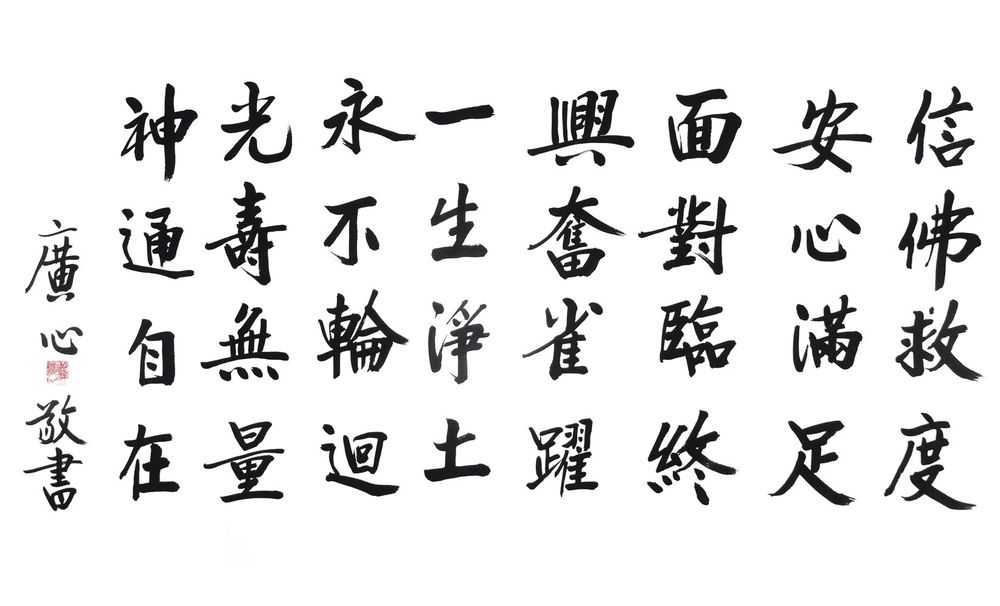 信佛救度
安心滿足
面對臨終
興奮雀躍
一生淨土
永不輪迴
光壽無量
神通自在
廣心敬書